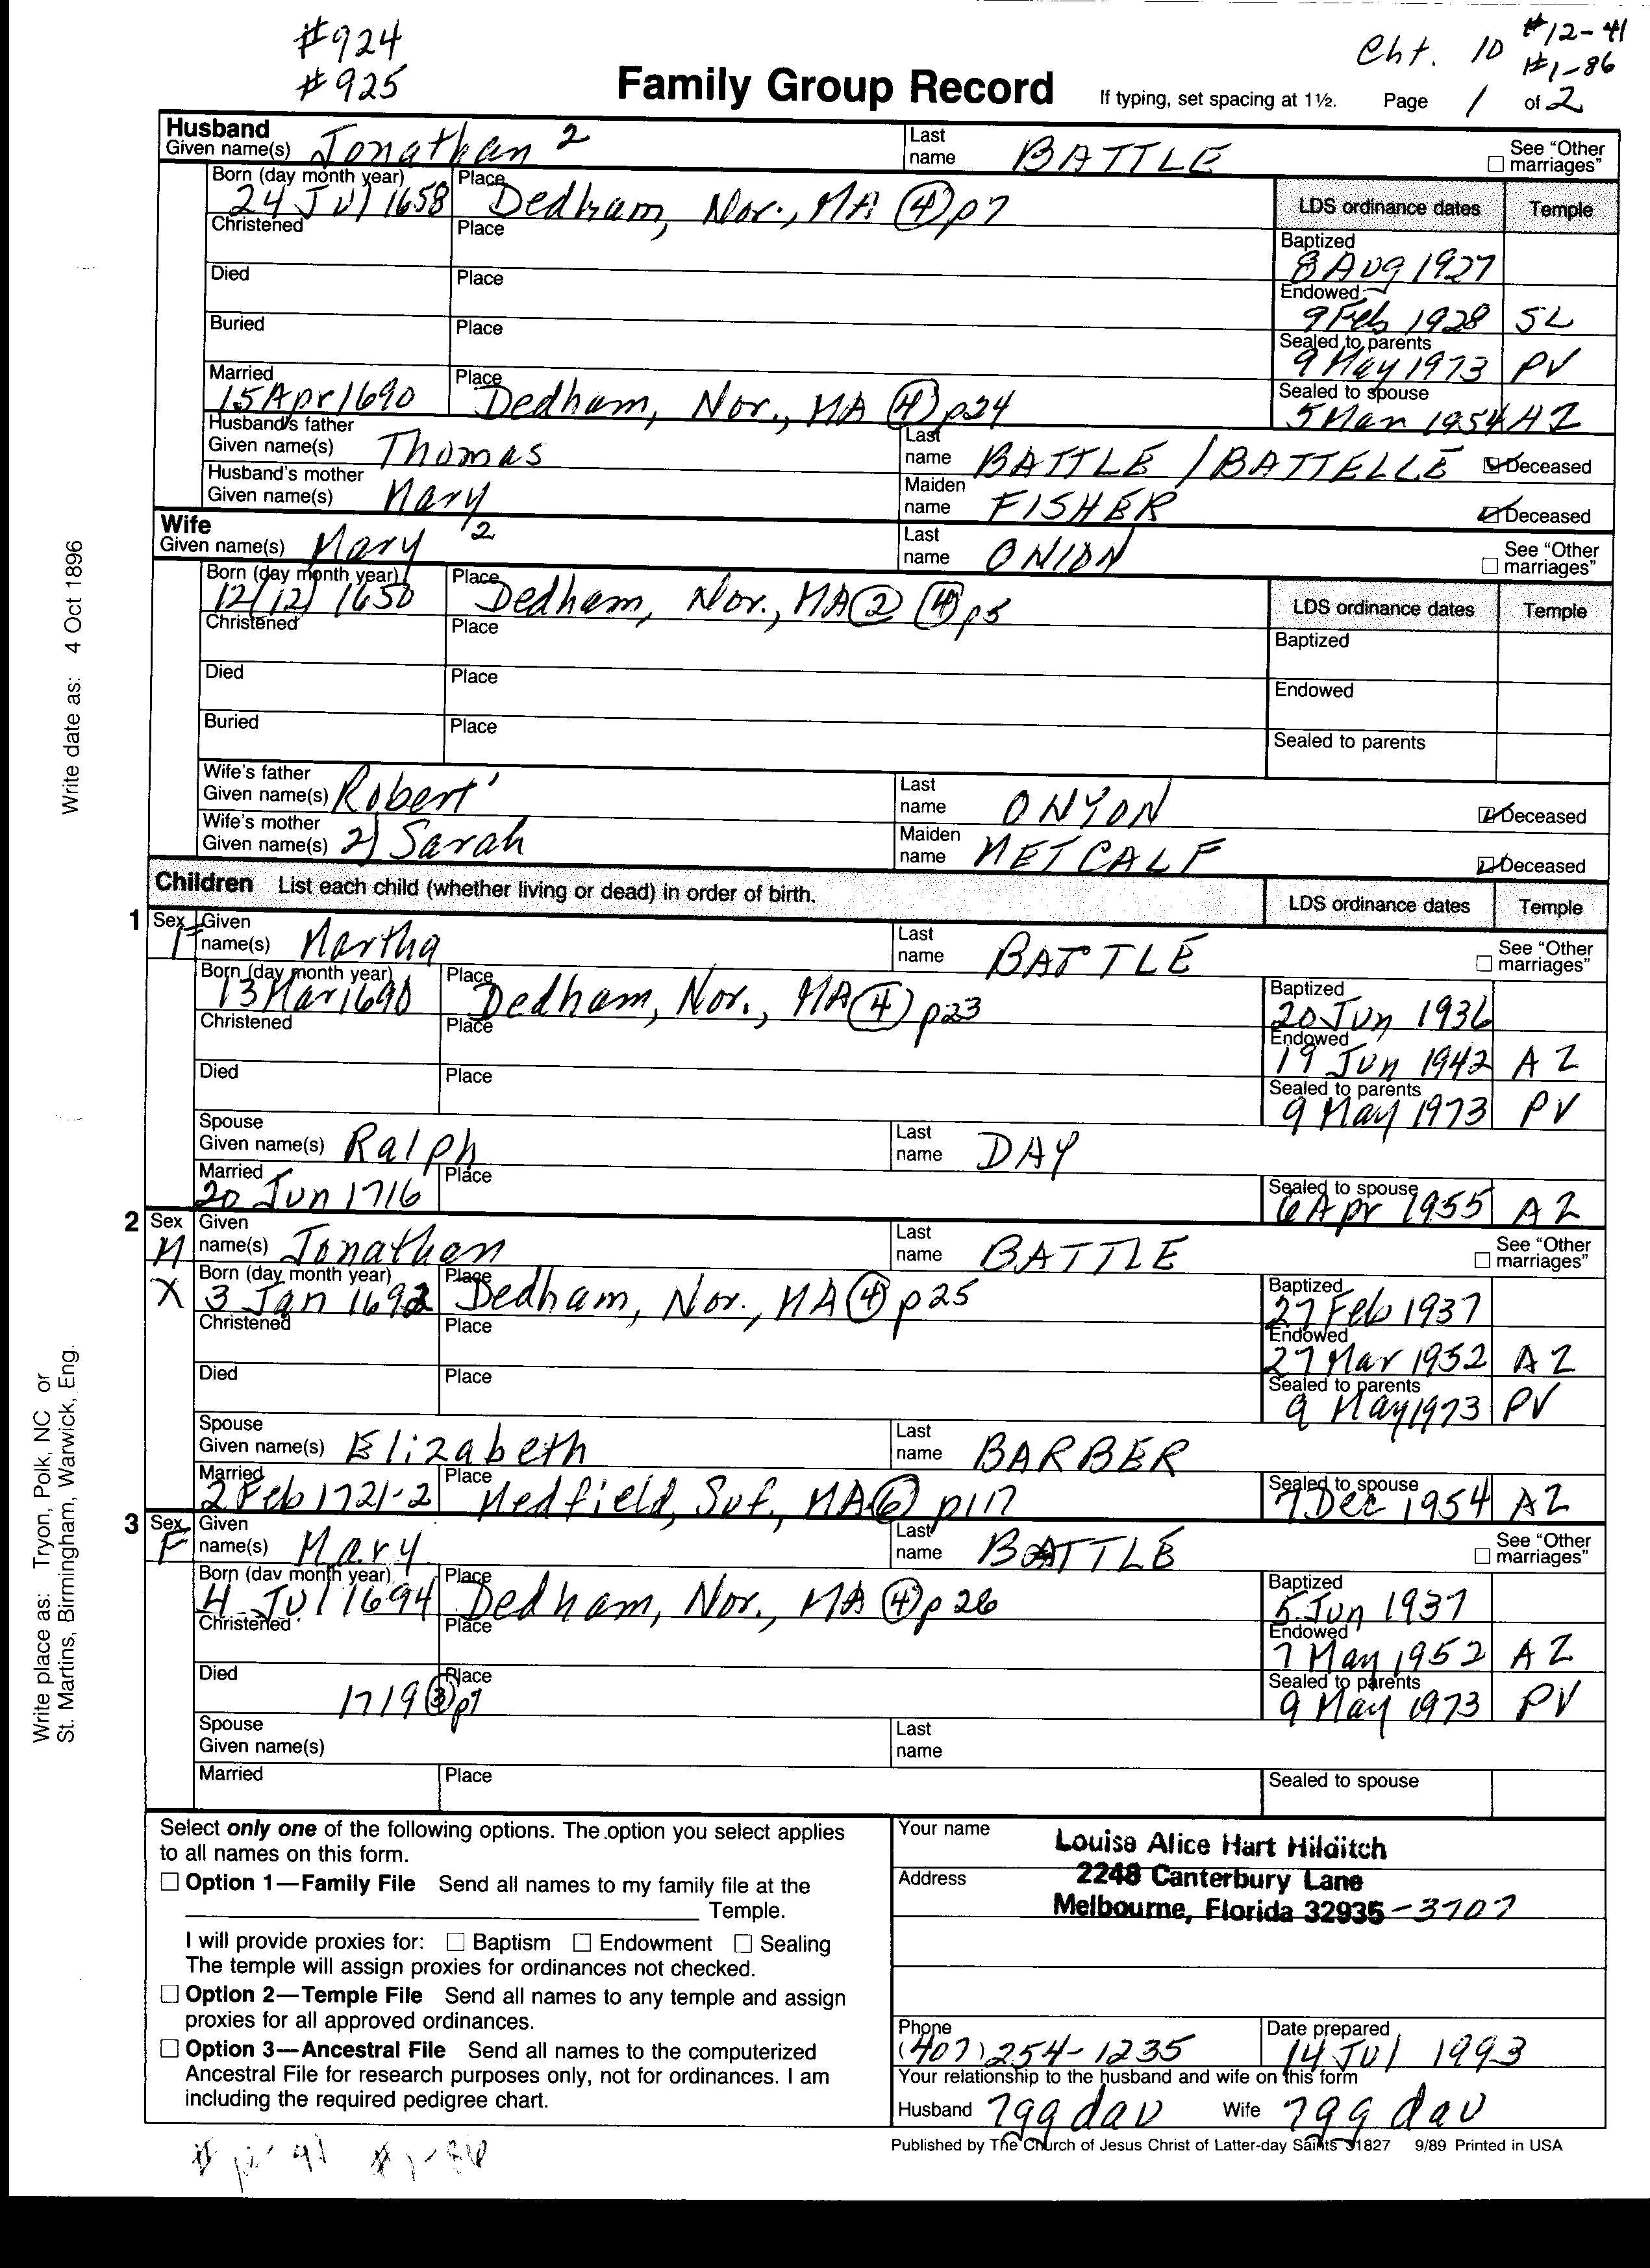 #924
#925
Cht. 10 #12-41
#1-86
Family Group Record If typing, set spacing at 1½. Page 1 of 2
Husband
Given name(s) Jonathan 2 Last name BATTLE See "Other marriages"
Born (day month year) 24 Jul 1658 Place Dedham, Nor., MA ④ p7 LDS ordinance dates Temple
Christened Place Baptized 8 Aug 1927
Died Place Endowed 9 Feb 1928 SL
Buried Place Sealed to parents 9 May 1973 PV
Married 15 Apr 1690 Place Dedham, Nor., MA ④ p24 Sealed to spouse 5 Mar 1954 AZ
Husband's father Given name(s) Thomas Last name BATTLE / BATTELLE Deceased
Husband's mother Given name(s) Mary Maiden name FISHER Deceased
Wife
Given name(s) Mary 2 Last name ONION See "Other marriages"
Born (day month year) 12(12) 1650 Place Dedham, Nor., MA ② ④ p5 LDS ordinance dates Temple
Christened Place Baptized
Died Place Endowed
Buried Place Sealed to parents
Wife's father Given name(s) Robert' Last name ONYON Deceased
Wife's mother Given name(s) 2) Sarah Maiden name METCALF Deceased
Children List each child (whether living or dead) in order of birth. LDS ordinance dates Temple
1 Sex F Given name(s) Martha Last name BATTLE See "Other marriages"
Born (day month year) 13 Mar 1690 Place Dedham, Nor., MA ④ p23 Baptized 20 Jun 1936
Christened Place Endowed 19 Jun 1942 AZ
Died Place Sealed to parents 9 May 1973 PV
Spouse Given name(s) Ralph Last name DAY
Married 20 Jun 1716 Place Sealed to spouse 6 Apr 1955 AZ
2 Sex M Given name(s) Jonathan Last name BATTLE See "Other marriages"
X Born (day month year) 3 Jan 1692 Place Dedham, Nor., MA ④ p25 Baptized 27 Feb 1937
Christened Place Endowed 27 Mar 1952 AZ
Died Place Sealed to parents 9 May 1973 PV
Spouse Given name(s) Elizabeth Last name BARBER
Married 2 Feb 1721-2 Place Medfield, Suf., MA ⑥ p117 Sealed to spouse 7 Dec 1954 AZ
3 Sex F Given name(s) Mary Last name BATTLE See "Other marriages"
Born (day month year) 4 Jul 1694 Place Dedham, Nor., MA ④ p26 Baptized 5 Jun 1937
Christened Place Endowed 7 May 1952 AZ
Died 1719 ③ p7 Place Sealed to parents 9 May 1973 PV
Spouse Given name(s) Last name
Married Place Sealed to spouse
Select only one of the following options. The option you select applies
to all names on this form.
Option 1—Family File Send all names to my family file at the
Temple.
I will provide proxies for: Baptism Endowment Sealing
The temple will assign proxies for ordinances not checked.
Option 2—Temple File Send all names to any temple and assign
proxies for all approved ordinances.
Option 3—Ancestral File Send all names to the computerized
Ancestral File for research purposes only, not for ordinances. I am
including the required pedigree chart.
Your name Louise Alice Hart Hilditch
Address 2248 Canterbury Lane
Melbourne, Florida 32935-3707
Phone (407) 254-1235 Date prepared 14 Jul 1993
Your relationship to the husband and wife on this form
Husband 7gg dau Wife 7gg dau
Published by The Church of Jesus Christ of Latter-day Saints 31827 9/89 Printed in USA
Write date as: 4 Oct 1896
Write place as: Tryon, Polk, NC or
St. Martins, Birmingham, Warwick, Eng.